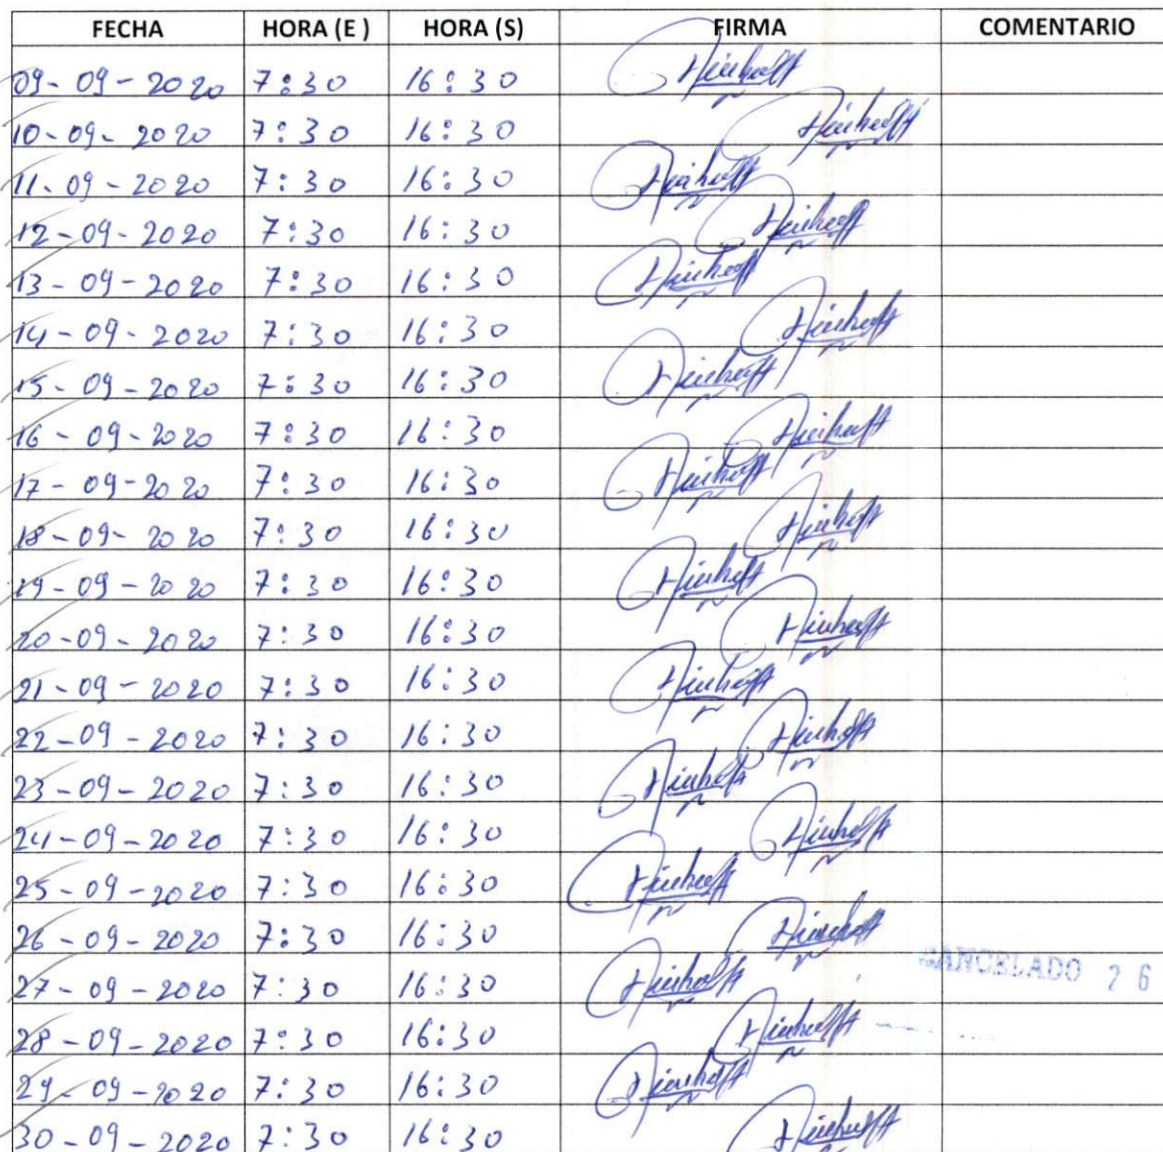 FECHA HORA (E ) HORA (S) FIRMA COMENTARIO
09-09-2020 7:30 16:30
10-09-2020 7:30 16:30
11-09-2020 7:30 16:30
12-09-2020 7:30 16:30
13-09-2020 7:30 16:30
14-09-2020 7:30 16:30
15-09-2020 7:30 16:30
16-09-2020 7:30 16:30
17-09-2020 7:30 16:30
18-09-2020 7:30 16:30
19-09-2020 7:30 16:30
20-09-2020 7:30 16:30
21-09-2020 7:30 16:30
22-09-2020 7:30 16:30
23-09-2020 7:30 16:30
24-09-2020 7:30 16:30
25-09-2020 7:30 16:30
26-09-2020 7:30 16:30
CANCELADO 26
27-09-2020 7:30 16:30
28-09-2020 7:30 16:30
29-09-2020 7:30 16:30
30-09-2020 7:30 16:30